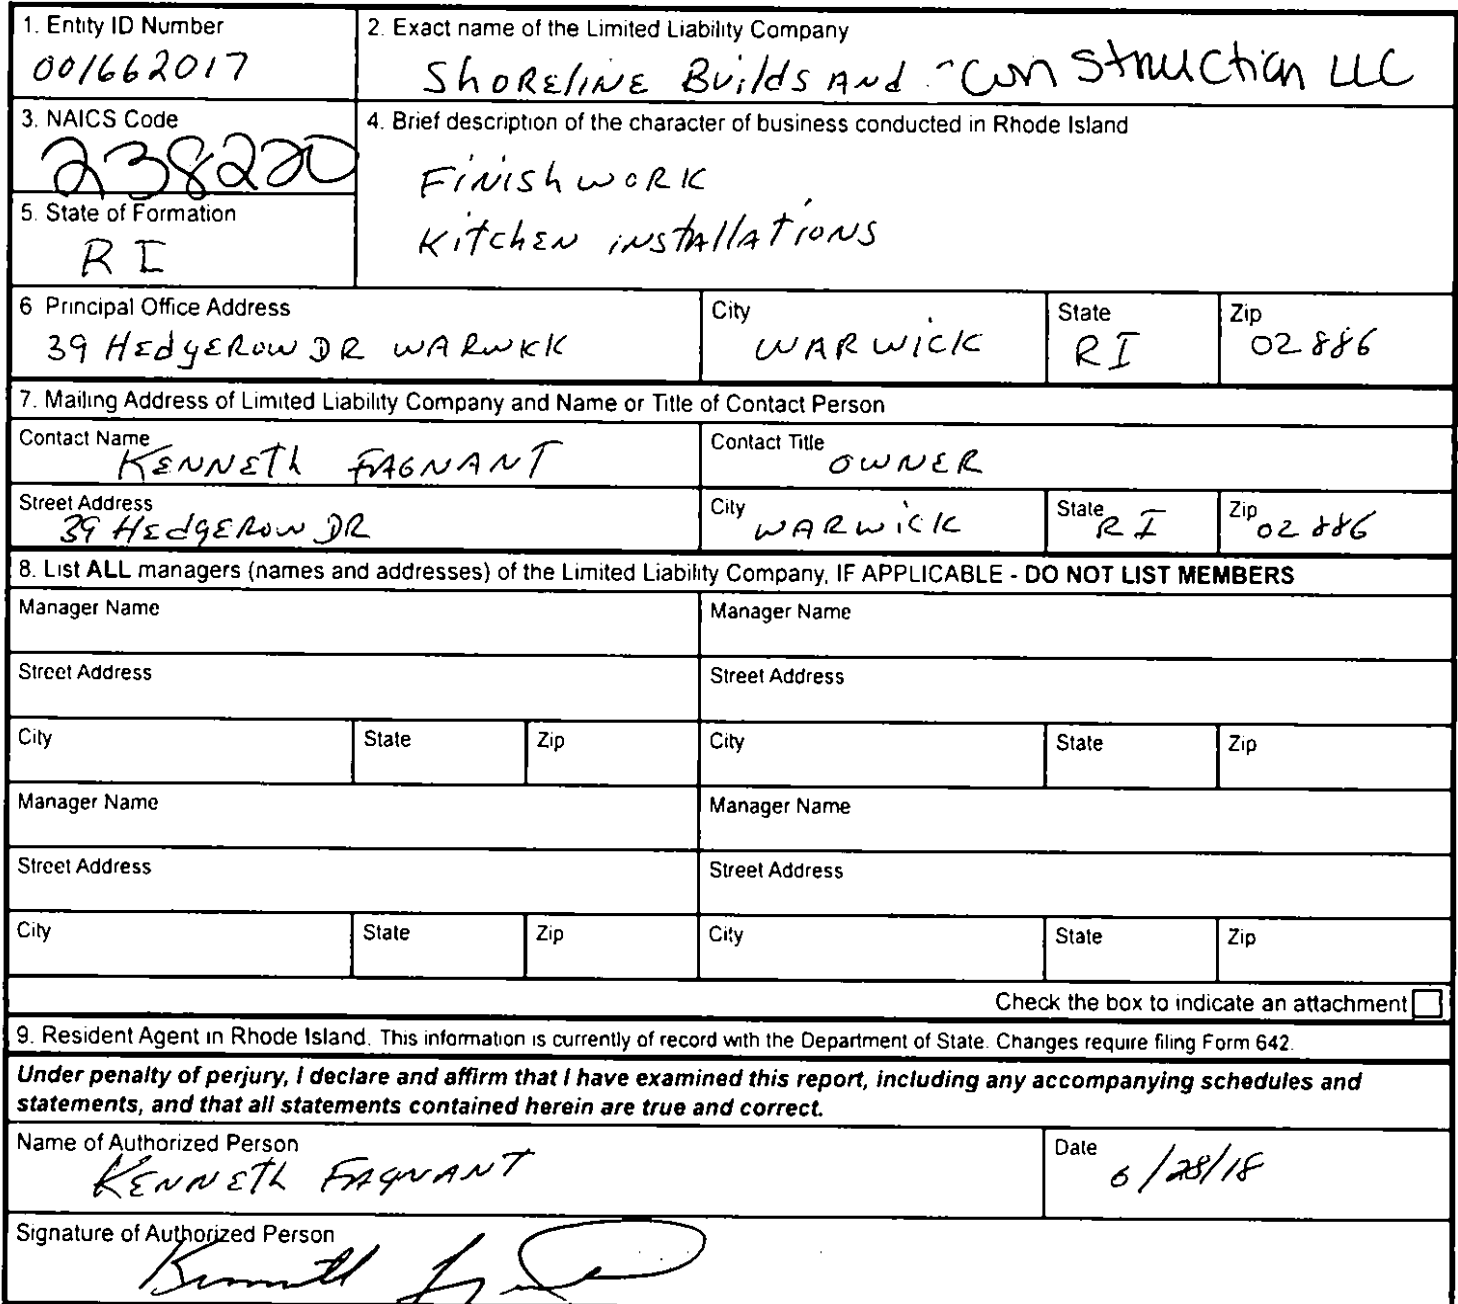 1. Entity ID Number
001662017
2. Exact name of the Limited Liability Company
ShoRElINE BuildS ANd Construction LLC
3. NAICS Code
238220
4. Brief description of the character of business conducted in Rhode Island
FiNiSh woRK
KitchEN iNStAllATiONS
5. State of Formation
RI
6 Principal Office Address
39 HEdgERow DR WARWKK
City
WARWiCK
State
RI
Zip
02886
7. Mailing Address of Limited Liability Company and Name or Title of Contact Person
Contact Name
KENNETh FAGNANT
Contact Title
OWNER
Street Address
39 HEdgERow DR
City
WARWiCK
State
RI
Zip
02886
8. List ALL managers (names and addresses) of the Limited Liability Company, IF APPLICABLE - DO NOT LIST MEMBERS
Manager Name
Manager Name
Street Address
Street Address
City State Zip City State Zip
Manager Name
Manager Name
Street Address
Street Address
City State Zip City State Zip
Check the box to indicate an attachment
9. Resident Agent in Rhode Island. This information is currently of record with the Department of State. Changes require filing Form 642.
Under penalty of perjury, I declare and affirm that I have examined this report, including any accompanying schedules and
statements, and that all statements contained herein are true and correct.
Name of Authorized Person
KENNETh FAGNANT
Date
6/28/18
Signature of Authorized Person
Kenneth